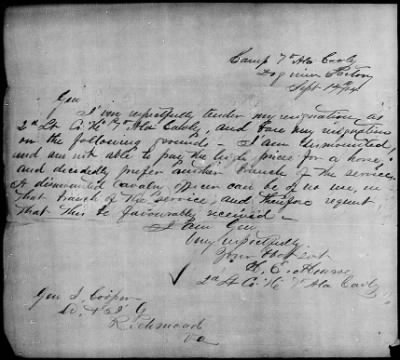 Camp 7th Ala Cavly
Sept
Gen
I very respectfully tender my resignation as
2d Lt Co "K" 7th Ala Cavly, and base my resignation
on the following grounds - I am dismounted
and am not able to pay the high prices for a horse,
and decidedly prefer another branch of the service.
A dismounted cavalry officer can be of no use, in
that branch of the service, and therefore request
that this be favourably received -
I am Gen
Very respectfully
Your Obt Svt
2d Lt Co "K" 7th Ala Cavly
Gen S. Cooper
A. & I. G
Richmond
Va